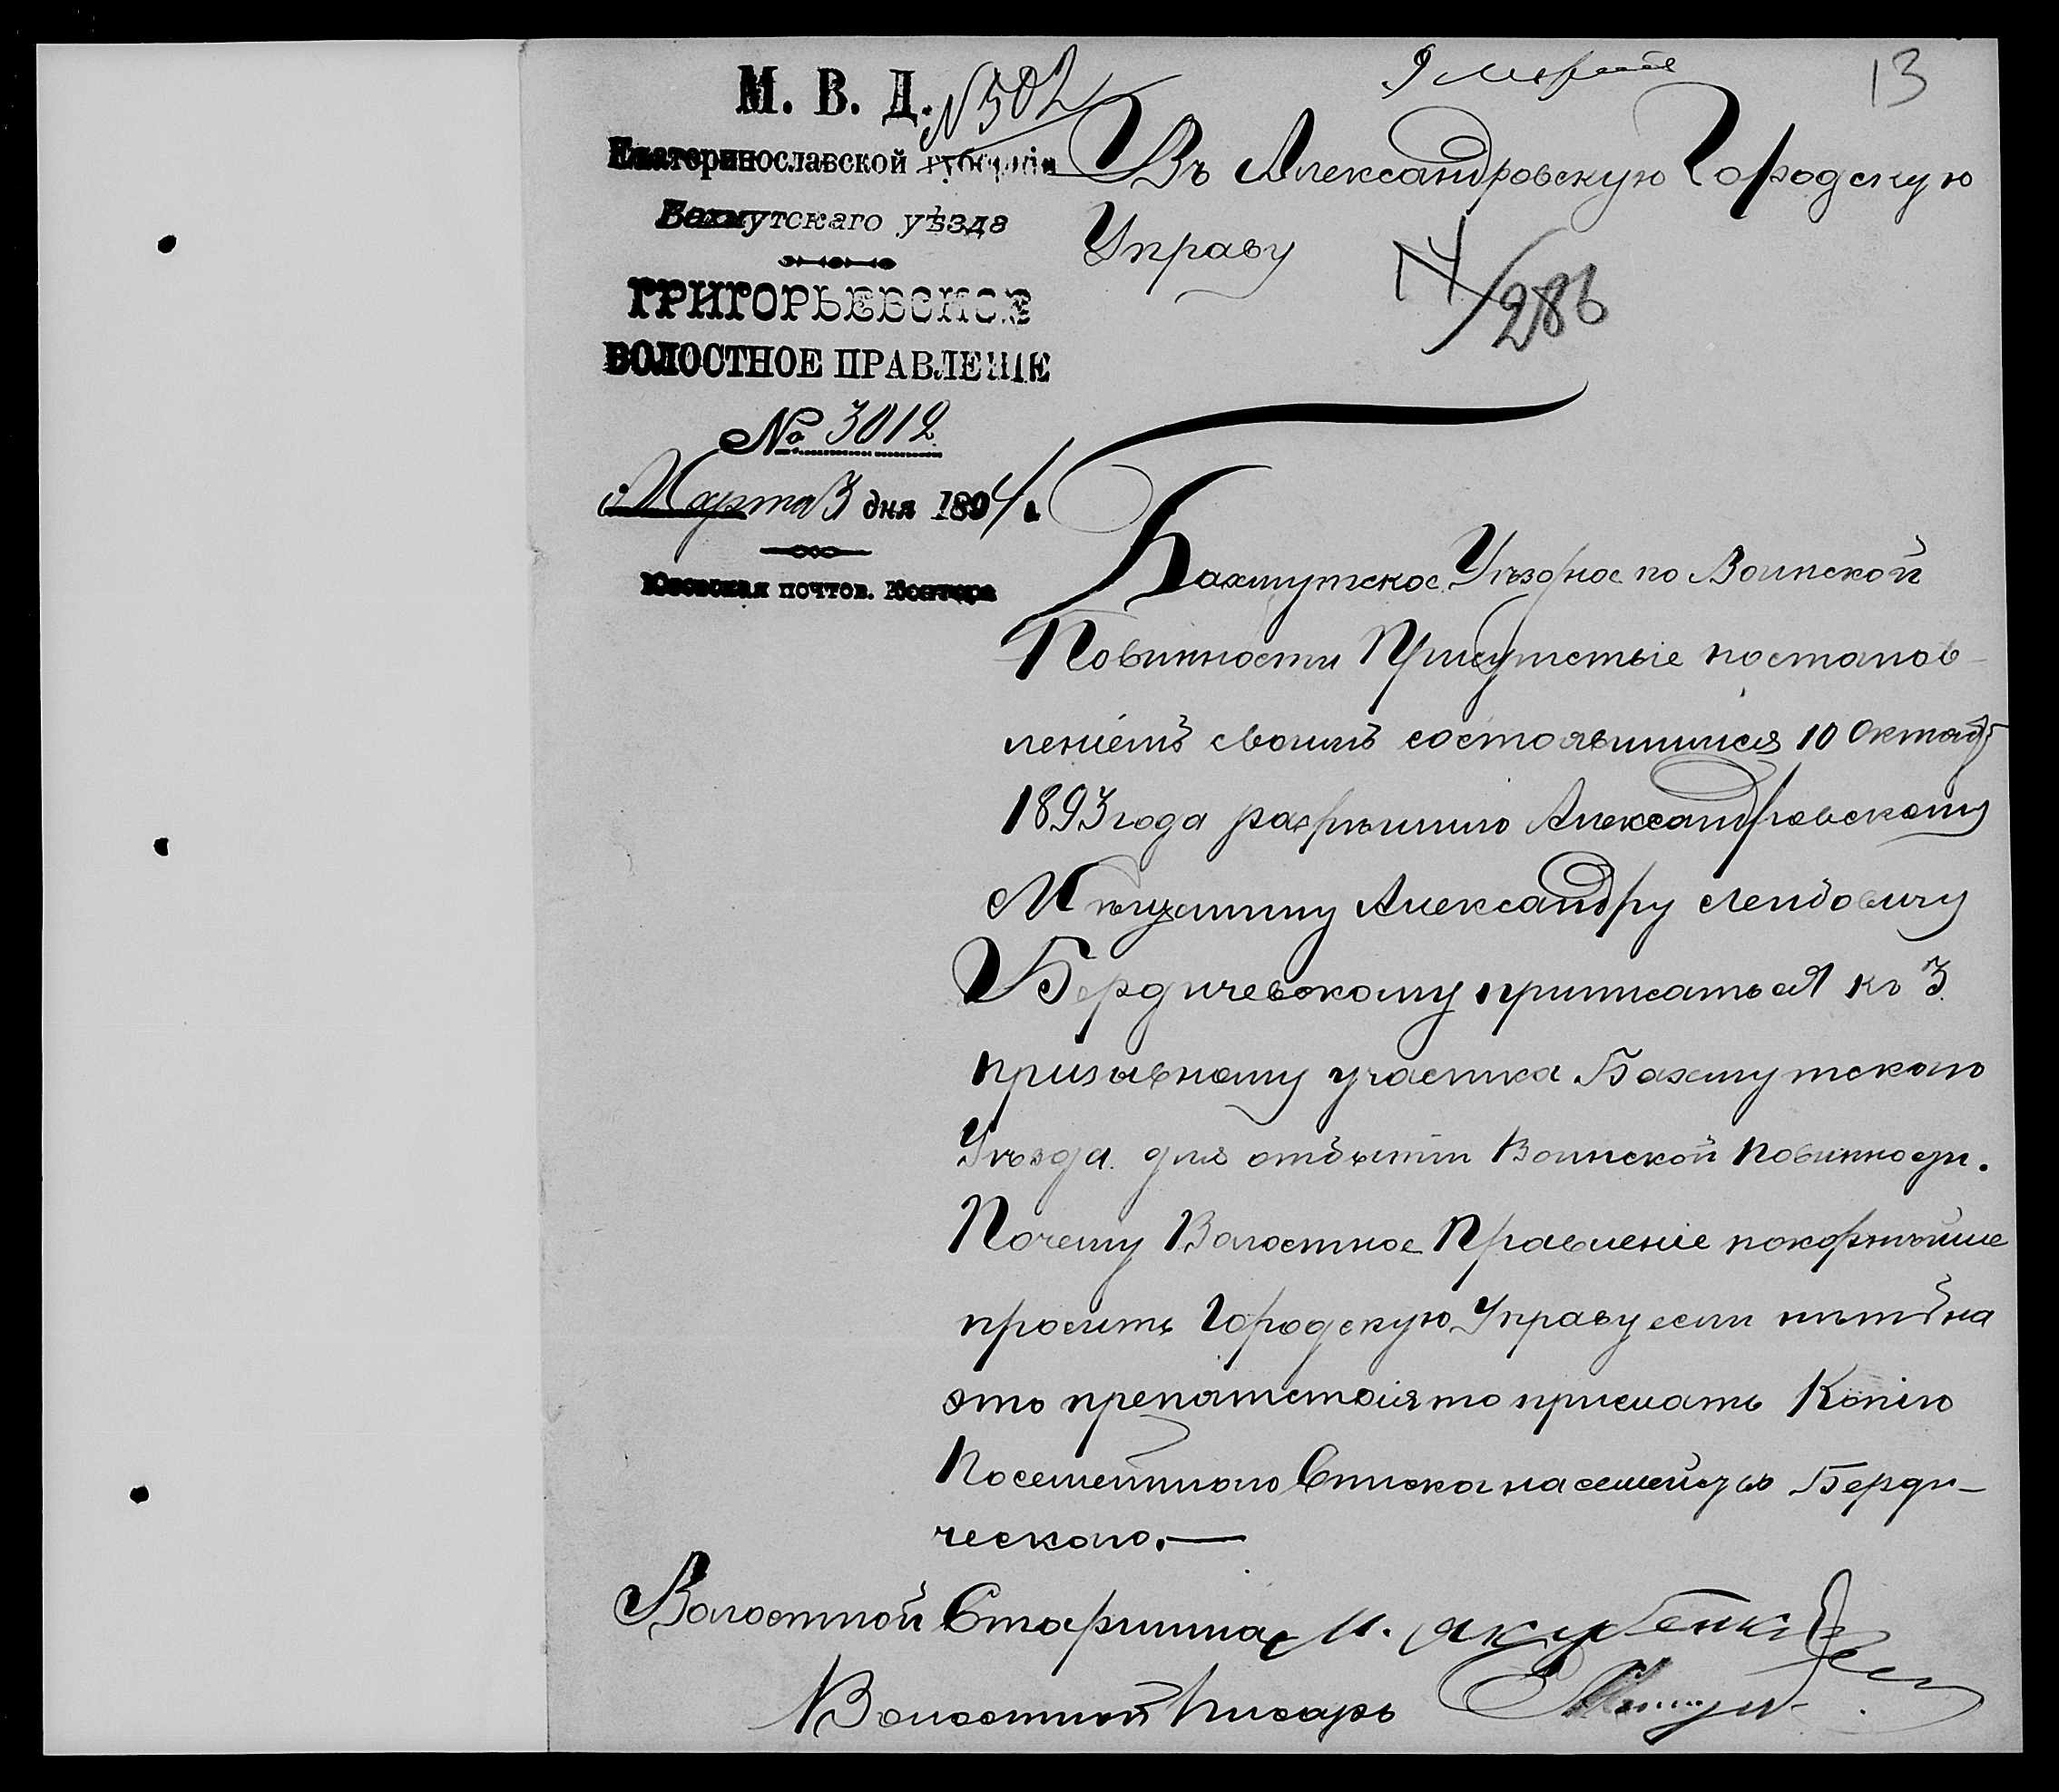 М. В. Д.
№ 502
9 Марта
13
Екатеринославской губерніи
Бахмутскаго уѣзда
ГРИГОРЬЕВСКОЕ
ВОЛОСТНОЕ ПРАВЛЕНІЕ
№ 3012
Марта 3 дня 1894 г.
Юзовская почтов. Контора
Въ Александровскую Городскую
Управу
286
Бахмутское Уѣздное по Воинской
Повинности Присутствіе постанов-
леніемъ своимъ состоявшимся 10 Октяб
1893 года разрѣшило Александровскому
Мѣщанину Александру Лейбовичу
Бердичевскому приписаться къ 3
призывному участка Бахмутскаго
Уѣзда для отбытія Воинской повинности.
Почему Волостное Правленіе покорнѣйше
проситъ Городскую Управу если нѣтъ на
это препятствія то прислать Копію
Посемейнаго Списка на семейство Берди-
ческаго.—
Волостной Старшина М. Якубенко
Волостной Писарь